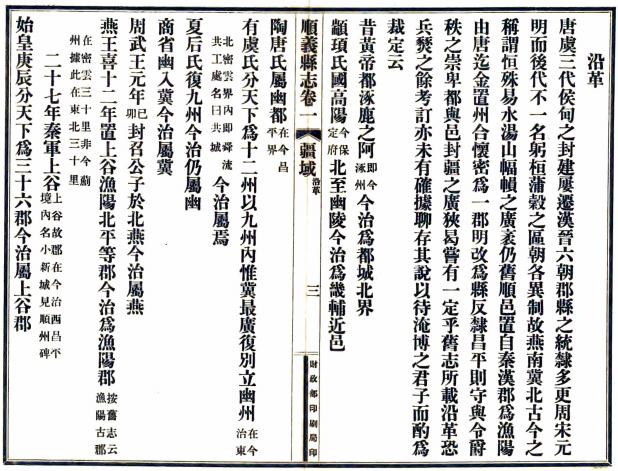 沿革
唐虞三代侯甸之封建屢遷漢晉六朝郡縣之統隸多更周宋元
明而後代不一名躬桓蒲穀之區朝各異制故燕南冀北古今之
稱謂恒殊易水湯山幅幀之廣袤仍舊順邑置自秦漢郡爲漁陽
由唐迄金置州合懷密爲一郡明改爲縣反隸昌平則守與令爵
秩之崇卑都與邑封疆之廣狹曷嘗有一定乎舊志所載沿革恐
兵燹之餘考訂亦未有確據聊存其說以待淹博之君子而酌爲
裁定云
昔黃帝都涿鹿之阿即今涿州今治爲都城北界
顓頊氏國高陽今保定府北至幽陵今治爲畿輔近邑
順義縣志卷一 疆域 沿革 三 財政部印刷局印
陶唐氏屬幽都在今昌平界
有虞氏分天下爲十二州以九州內惟冀最廣復別立幽州在今治東
北密雲界內即舜流共工處名曰共城今治屬焉
夏后氏復九州今治仍屬幽
商省幽入冀今治屬冀
周武王元年己卯封召公於北燕今治屬燕
燕王喜十二年置上谷漁陽北平等郡今治爲漁陽郡按舊志云漁陽古郡
在密雲三十里非今薊州據此在東北三十里
二十七年秦軍上谷上谷故郡在今治西昌平境內名小新城見順州碑
始皇庚辰分天下爲三十六郡今治屬上谷郡